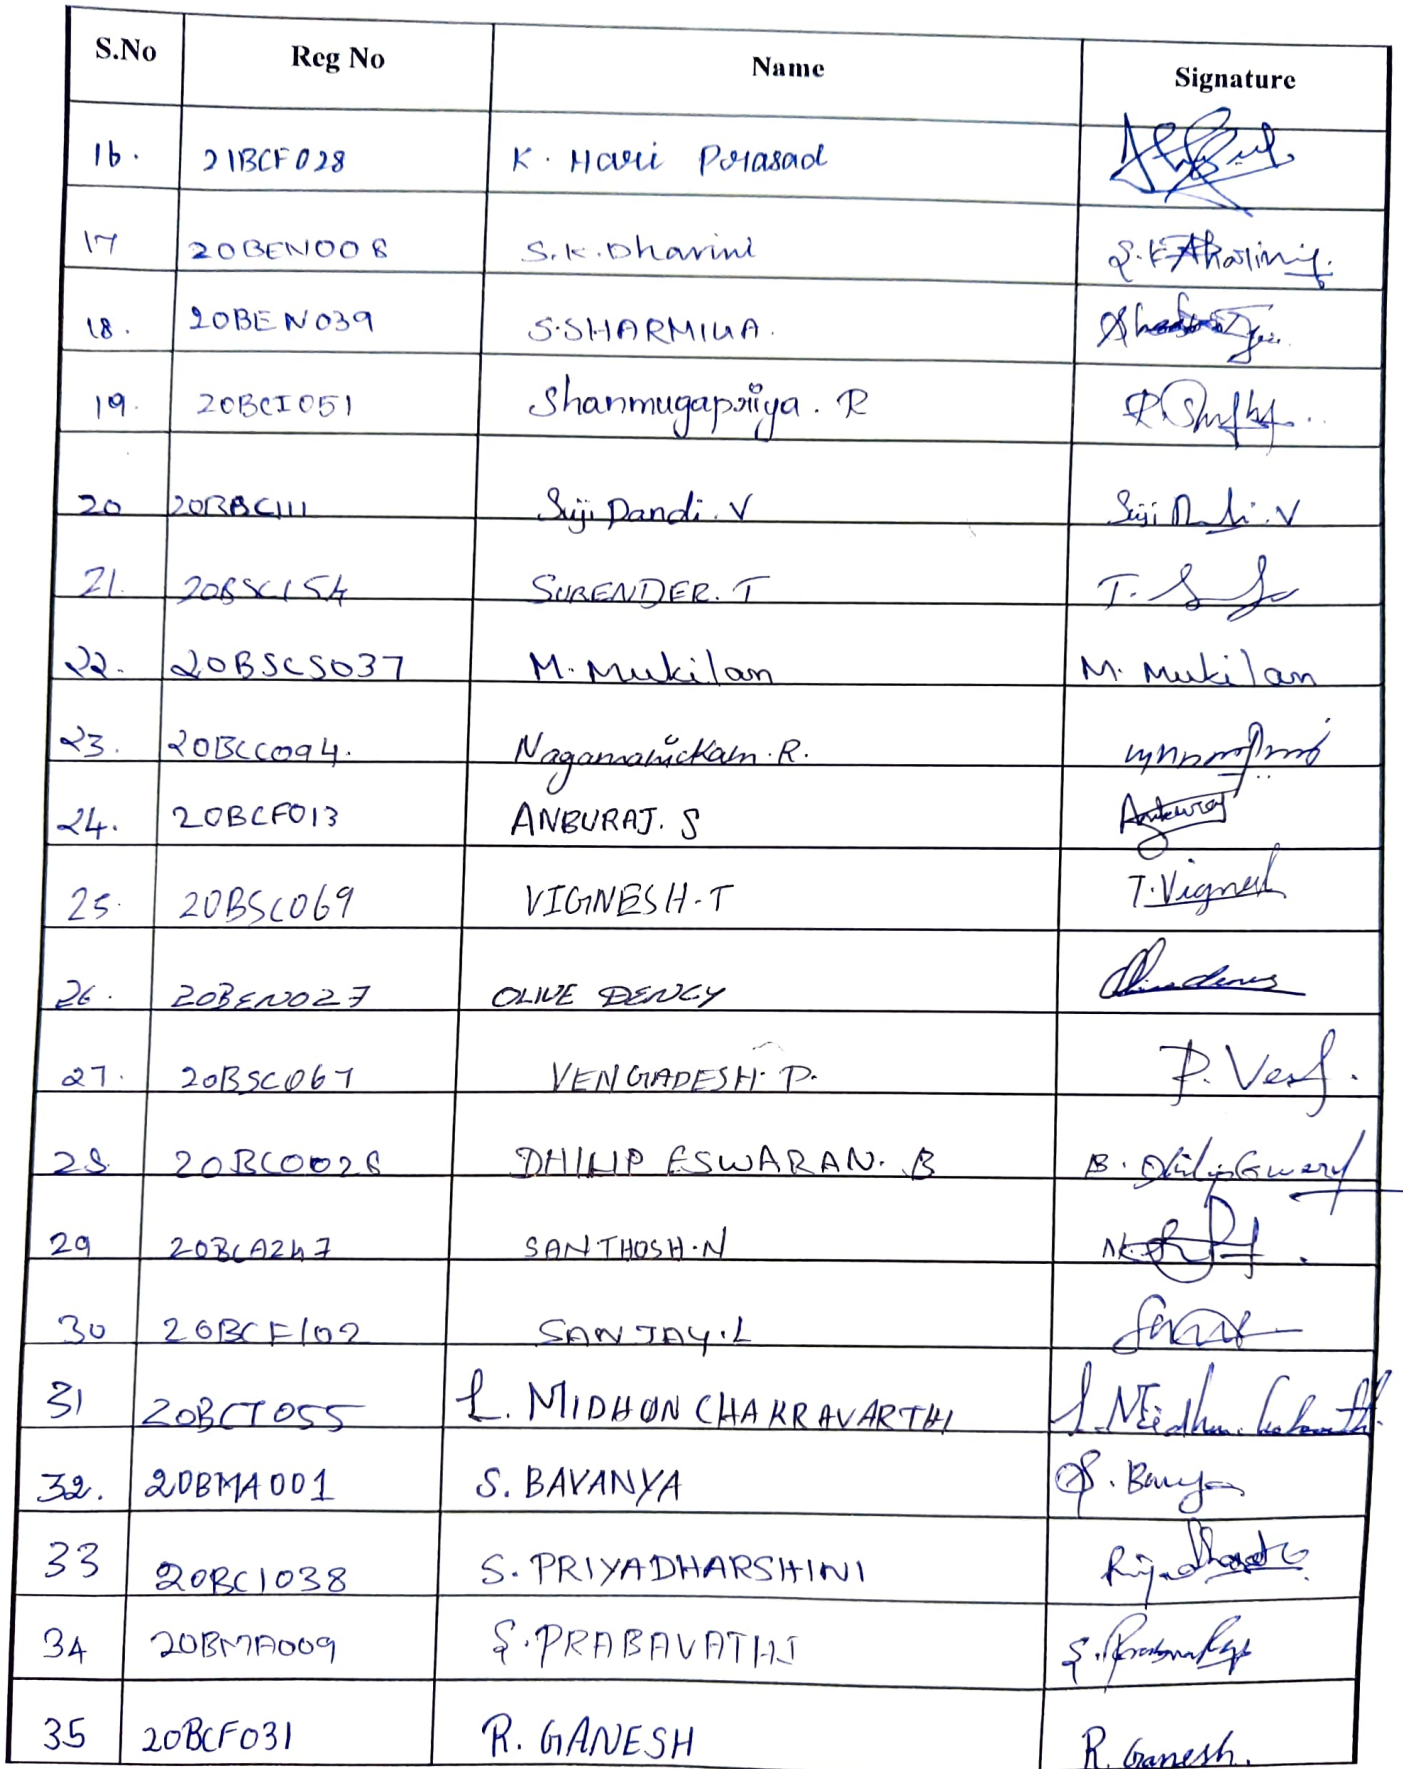 S.No Reg No Name Signature
16. 21BCF028 K. Hari Prasad
17 20BEN008 S.K.Dharini
18. 20BEN039 S.SHARMILA.
19. 20BCI051 Shanmugapriya. R
20 20BBC111 Suji Pandi. V Suji V
21. 20BSC154 SURENDER. T T.
22. 20BSCS037 M. Mukilan M. Mukilan
23. 20BCC094. Nagamanickam. R.
24. 20BCF013 ANBURAJ. S Anburaj
25. 20BSC069 VIGNESH.T T.Vignesh
26. 20BEN027 OLIVE DENCY
27. 20BSC067 VENGADESH. P. P.
28. 20BCO028 DHILIP ESWARAN. B B.
29 20BCA247 SANTHOSH.N
30 20BCF102 SANJAY.L
31 20BCI055 L. MIDHUN CHAKRAVARTHI L.
32. 20BMA001 S. BAVANYA S.
33 20BCI038 S. PRIYADHARSHINI
34 20BMA009 S.PRABAVATHI S.
35 20BCF031 R. GANESH R. Ganesh.